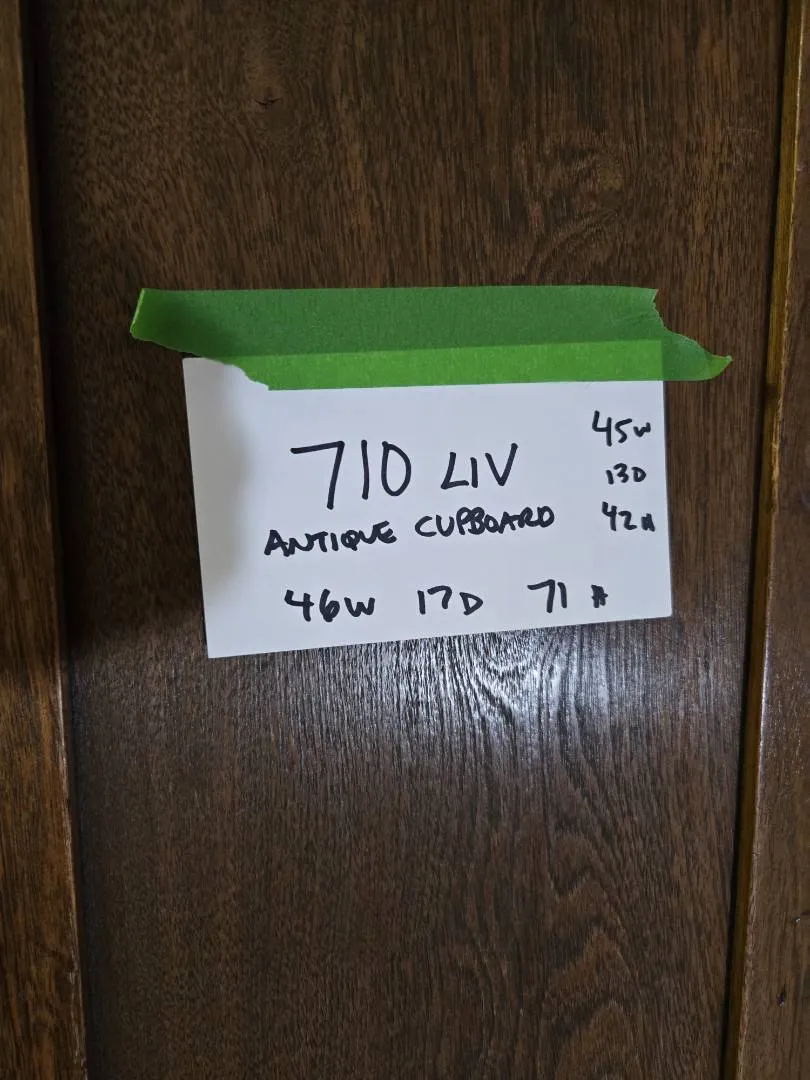 710 LIV
ANTIQUE CUPBOARD
46W 17D 71 H
45W
13D
42H